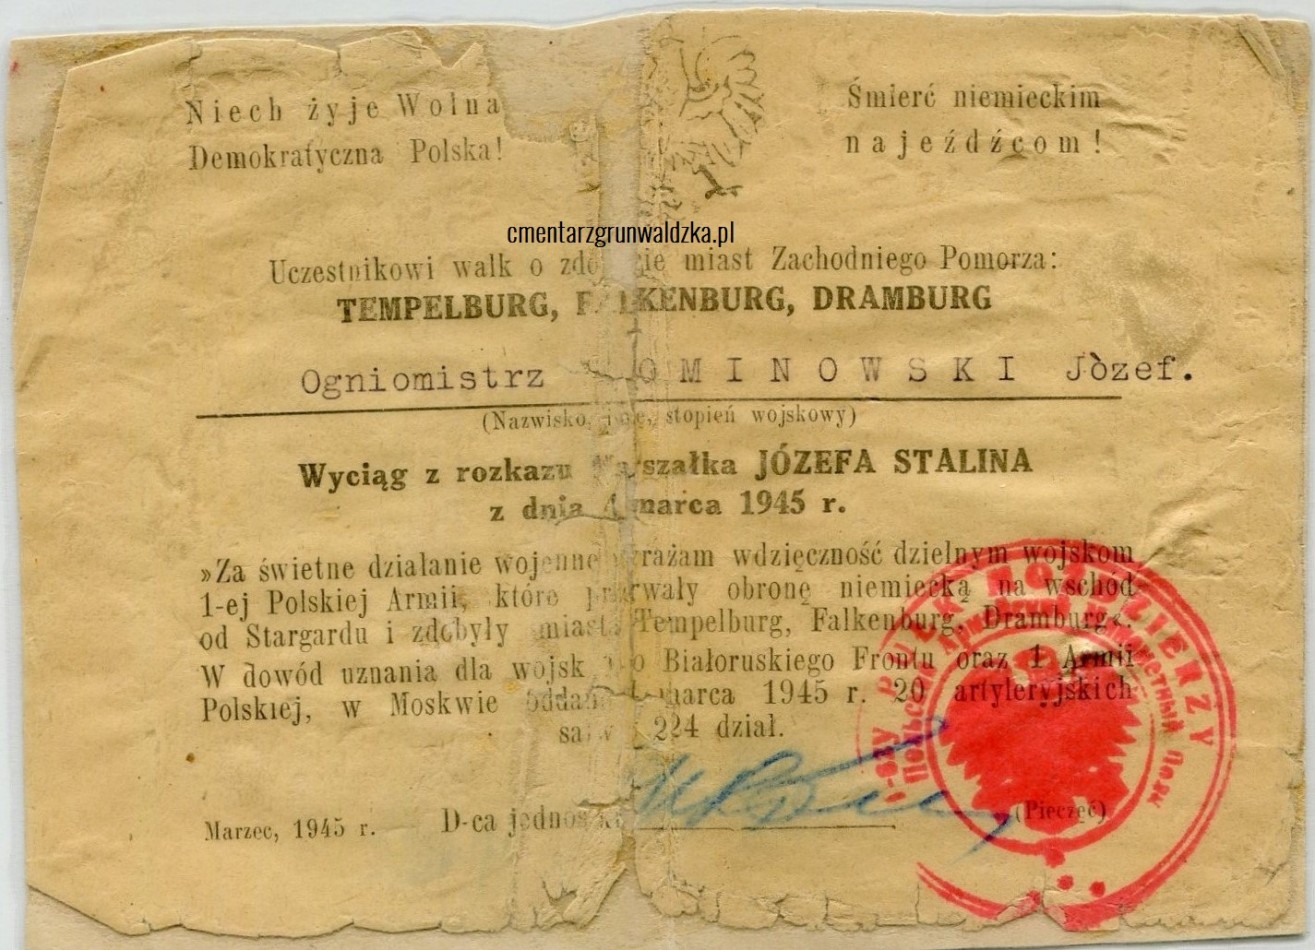 Niech żyje Wolna
Demokratyczna Polska!
Śmierć niemieckim
najeźdźcom!
cmentarzgrunwaldzka.pl
Uczestnikowi walk o miast Zachodniego Pomorza:
TEMPELBURG, FALKENBURG, DRAMBURG
Ogniomistrz OMINOWSKI Jòzef.
(Nazwisko, stopień wojskowy)
Wyciąg z rozkazu Marszałka JÓZEFA STALINA
z dnia 4 marca 1945 r.
»Za świetne działanie wojenne wyrażam wdzięczność dzielnym wojskom
1-ej Polskiej Armii, które przerwały obronę niemiecką na wschód
od Stargardu i zdobyły miasta Tempelburg, Falkenburg, Dramburg«.
W dowód uznania dla wojsk Białoruskiego Frontu oraz 1 Armii
Polskiej, w Moskwie oddano marca 1945 r. 20 artyleryjskich
salw 224 dział.
Marzec, 1945 r. D-ca jednostki
(Pieczęć)